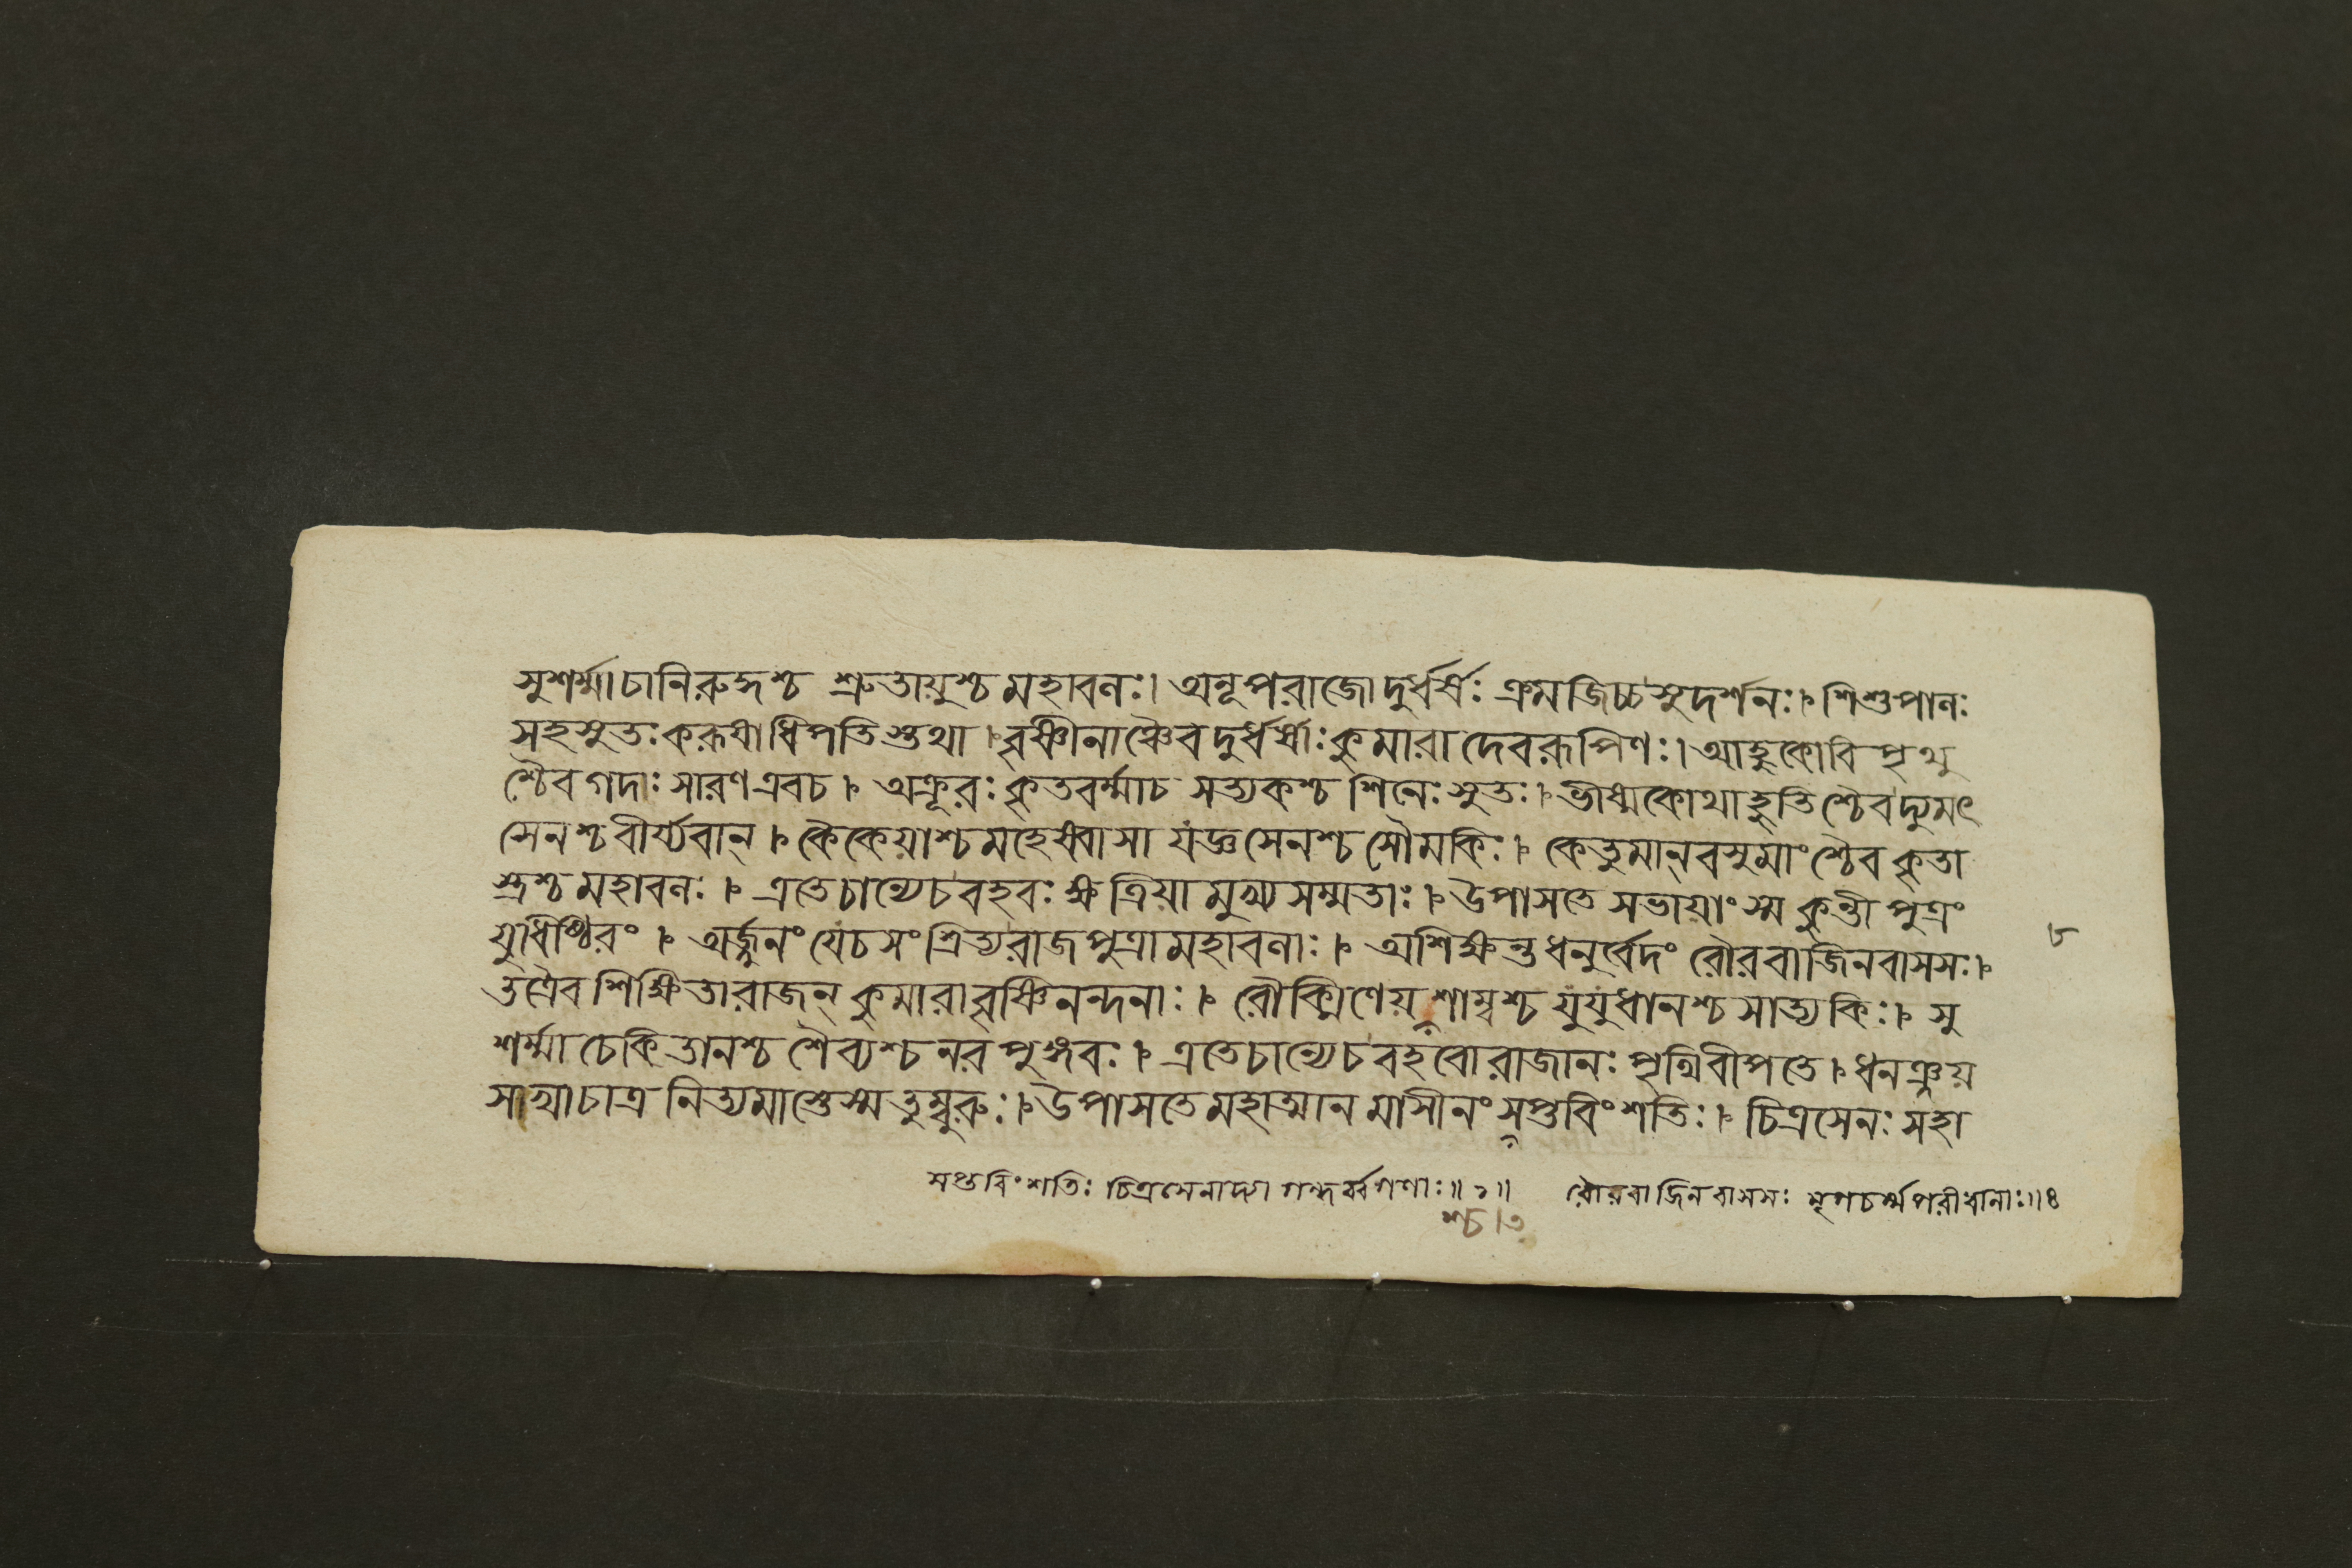 সুশর্ম্মাচানিরুদ্ধশ্চ শ্রুতায়ুশ্চমহাবলঃ। অনূপরাজোদুর্ধর্ষঃ ক্রমজিচ্চসুদর্শনঃ। শিশুপালঃ
সহসুতঃকরূষাধিপতিস্তথা। বৃষ্ণীনাঞ্চৈবদুর্ধর্ষাঃকুমারাদেবরূপিণঃ। আহুকোবিপৃথু
শ্চৈবগদঃসারণএবচ। অক্রূরঃকৃতবর্ম্মাচ সত্যকশ্চশিনেঃসুতঃ। ভীষ্মকোথাহুতিশ্চৈবদ্যুমৎ
সেনশ্চবীর্য্যবান্। কৈকেয়াশ্চমহেষ্বাসা যজ্ঞসেনশ্চসৌমকিঃ। কেতুমান্বসুমাংশ্চৈবকৃতা
স্ত্রশ্চমহাবলঃ। এতেচান্যেচবহবঃক্ষত্রিয়ামুখ্যসম্মতাঃ। উপাসতেসভায়াংস্মকুন্তীপুত্রং
যুধিষ্ঠিরং। অর্জ্জুনংযেচসংশ্রিত্যরাজপুত্রামহাবলাঃ। অশিক্ষন্তধনুর্বেদং রৌরবাজিনবাসসঃ।
তত্রৈবশিক্ষিতারাজন্ কুমারাবৃষ্ণিনন্দনাঃ। রৌক্মিণেয়শাম্বশ্চযুযুধানশ্চসাত্যকিঃ। সু
শর্ম্মাচেকিতানশ্চশৈব্যশ্চনরপুঙ্গবঃ। এতেচান্যেচবহবোরাজানঃপৃথিবীপতে। ধনঞ্জয়
সাখাচাত্রনিত্যমাস্তেস্মতুম্বুরুঃ। উপাসতেমহাত্মানমাসীনংসপ্তবিংশতিঃ। চিত্রসেনঃসহা
সপ্তবিংশতিঃ চিত্রসেনাদ্যা গন্ধর্ব্বগণাঃ॥২॥ রৌরবাজিনবাসসঃ মৃগচর্ম্মপরীধানাঃ॥৪
শ্চ।৩
৮